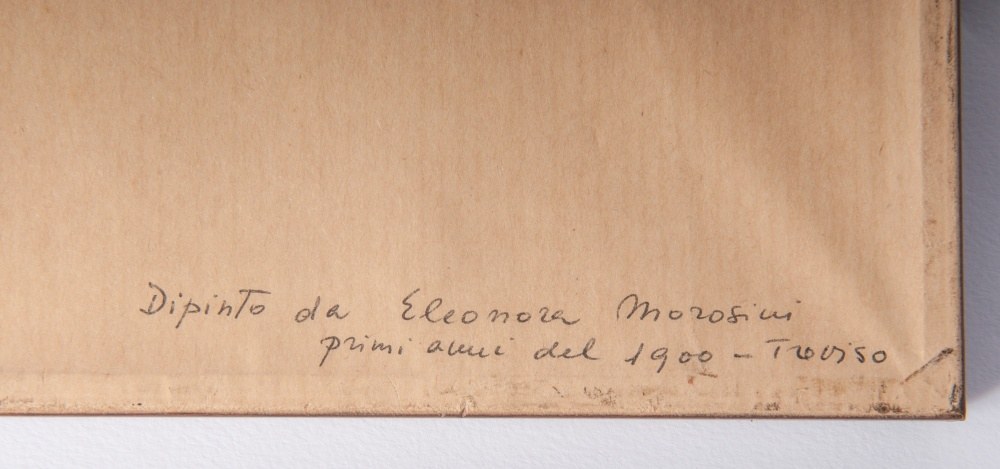 Dipinto da Eleonora Morosini
primi anni del 1900 - Treviso